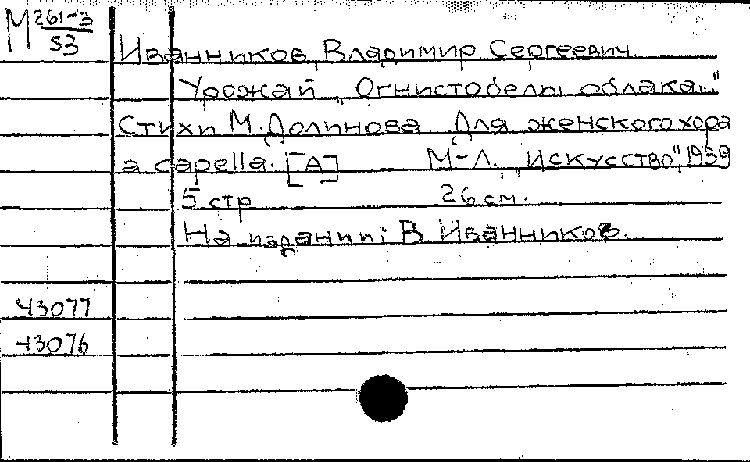 М 261-3
53
Иванников, Владимир Сергеевич.
Урожай „Огнистобелы облака.."
Стихи М. Долинова Для женского хора
a capella. [А] М-Л. „Искусство", 1939
5 стр 26 см.
На издании: В Иванников.
43077
43076